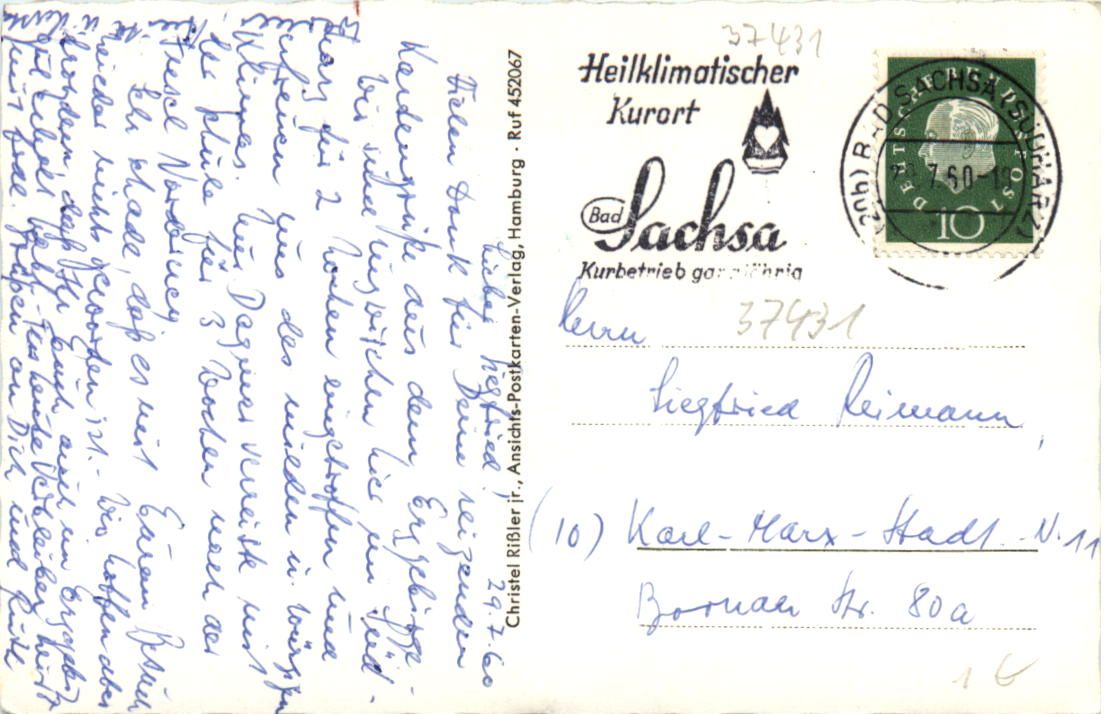 37431
Heilklimatischer
Kurort
Bad Sachsa
Kurbetrieb ganzjährig
(20b) BAD SACHSA (SÜDHARZ)
7.60-19
DEUTSCHE BUNDESPOST
10
37431
Herrn
Siegfried Reimann,
(10) Karl-Marx-Stadt N. 11
Bornaer Str. 80a
1 €
Christel Rißler jr., Ansichts-Postkarten-Verlag, Hamburg · Ruf 452067
29.7.60
Lieber Siegfried!
Vielen Dank für Deine reizenden
Kartengrüße aus dem Erzgebirge.
Wir sind inzwischen hier im Süd-
harz für 2 Wochen eingetroffen und
erfreuen uns des milden u. würzigen
Klimas. Uns Dagmar verreist mit
der Schule für 3 Wochen nach der
Insel Norderney
Sehr schade, daß es mit Eurem Besuch
leider nichts geworden ist. - Wir hoffen aber
trotzdem, daß Ihr Euch auch im Erzgebirge
gut erholt habt. - Für heute verbleiben wir
mit frdl. Grüßen an Dich und Ruth